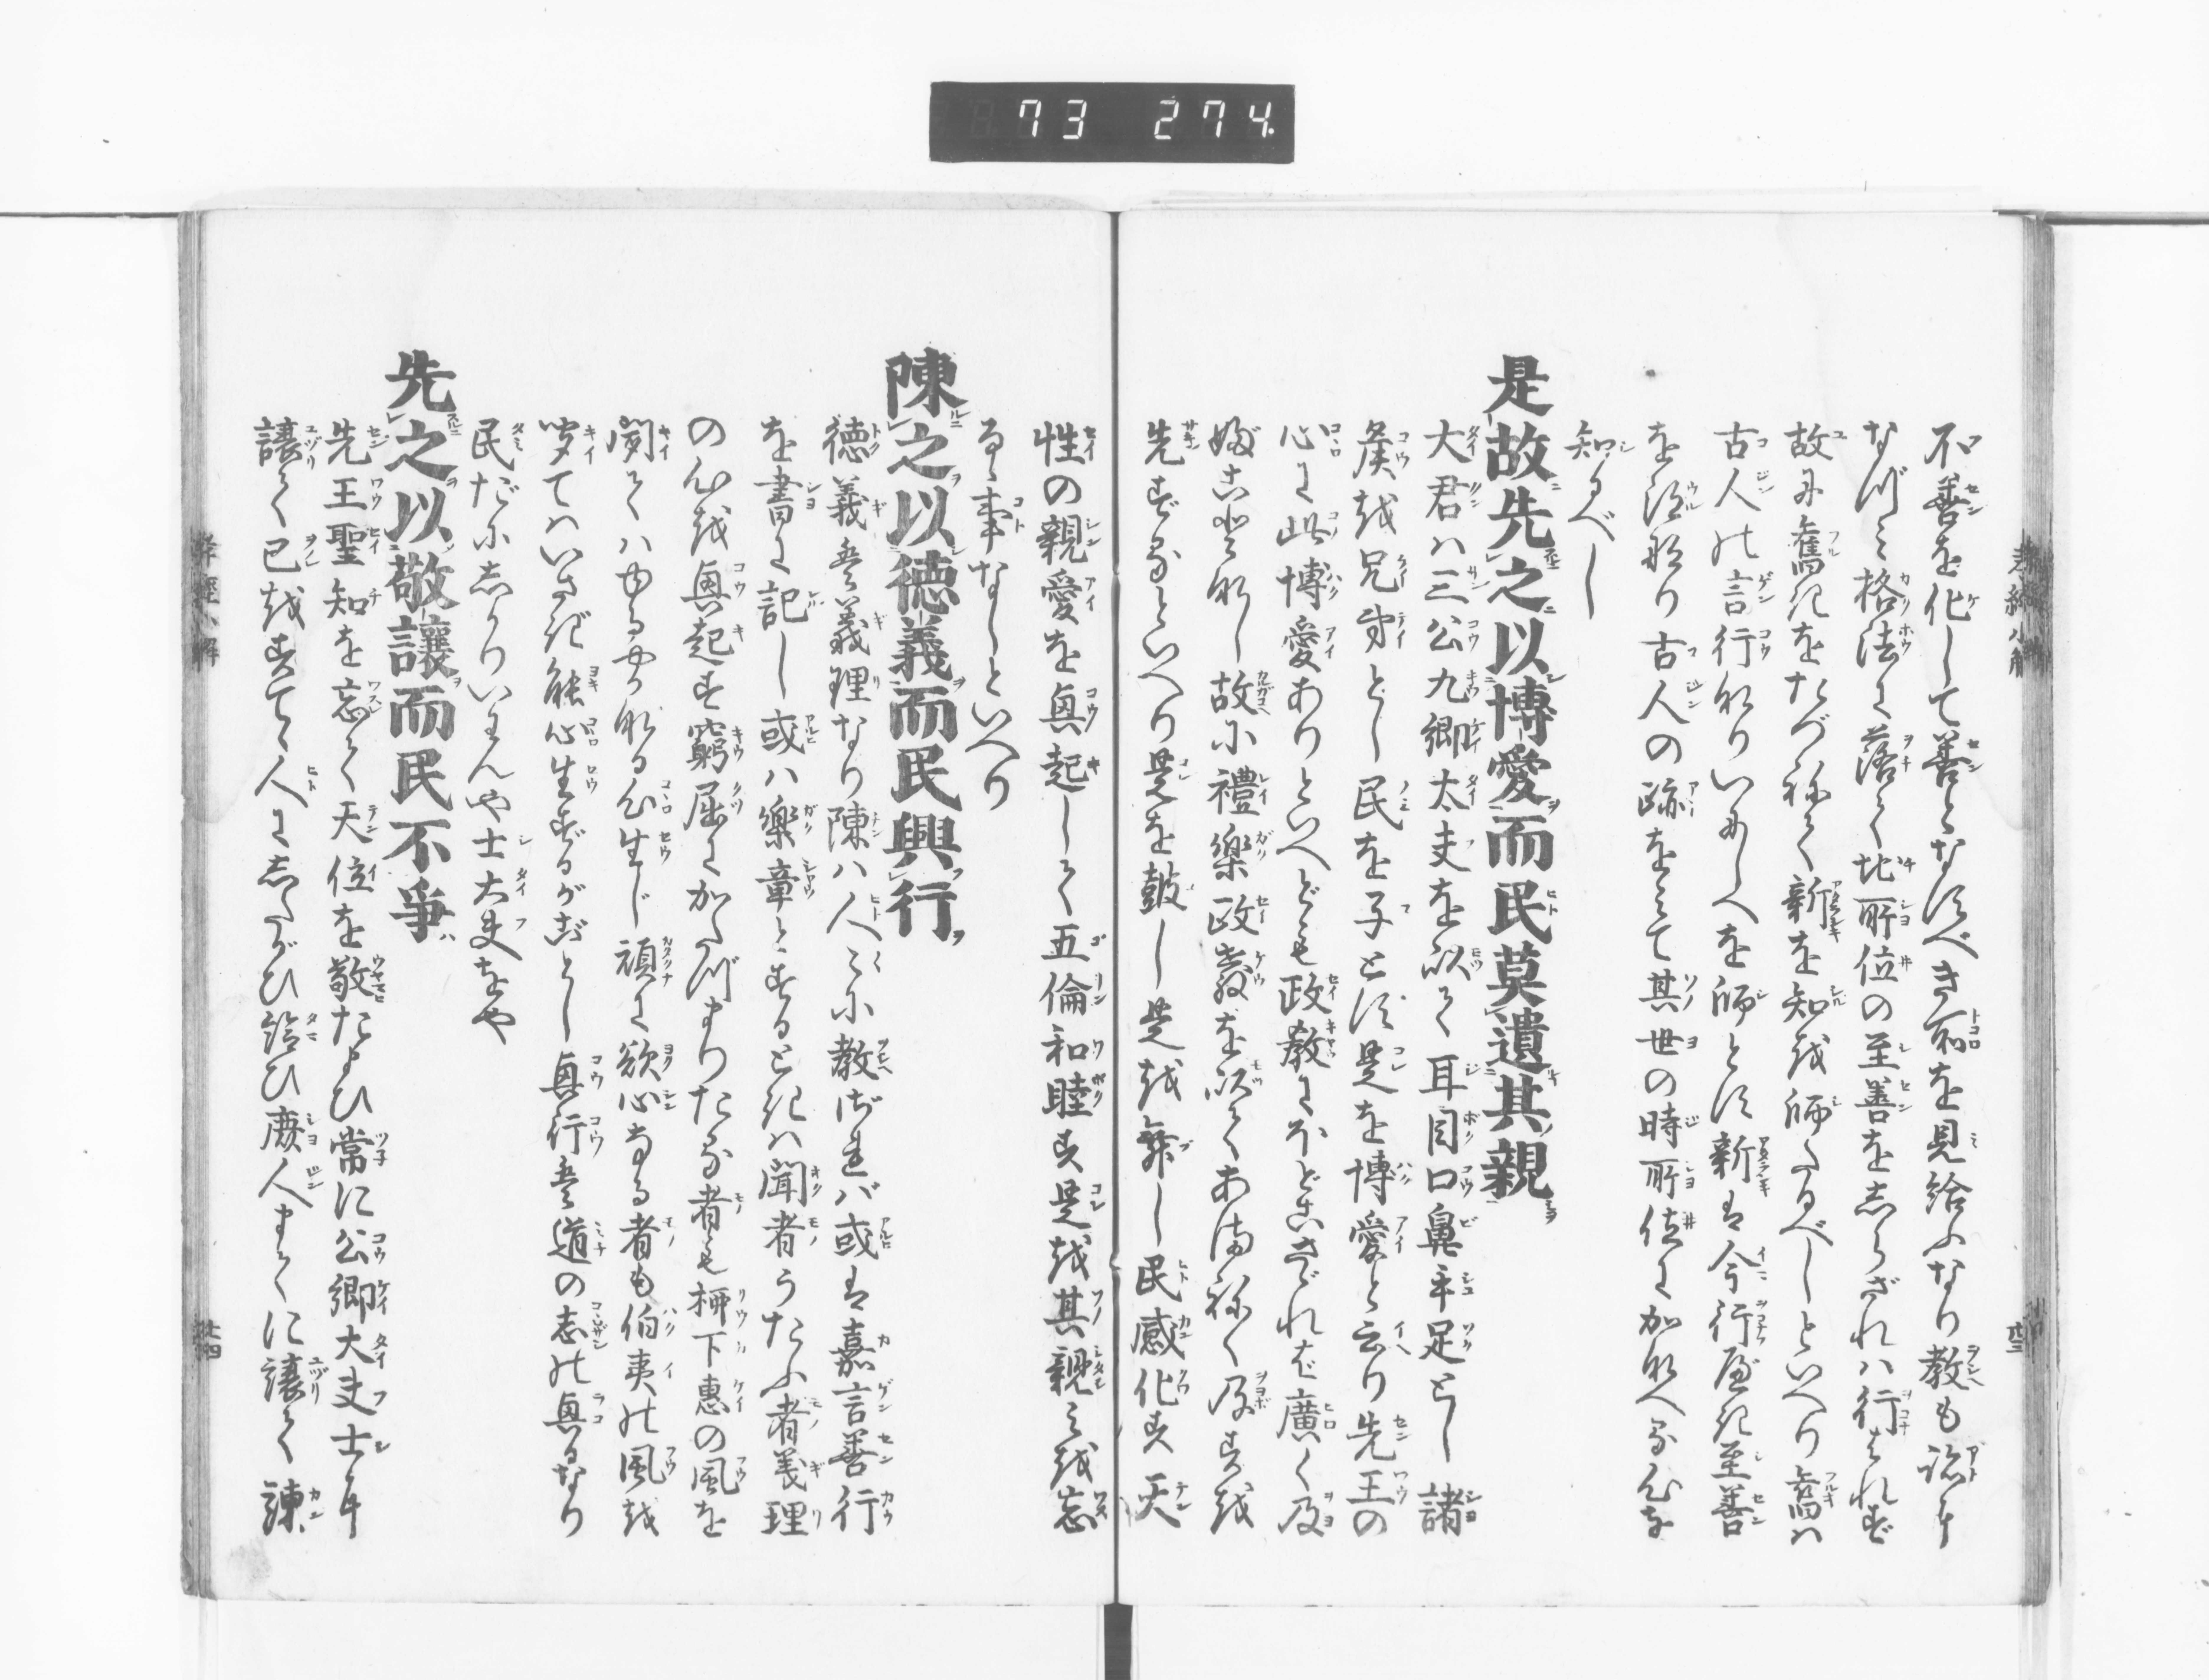 73 274.
不善を化して善となすべき所を見給ふなり教も跡に
なづみ格法に落て此所位の至善をしらざれハ行はれず
故に舊きをたづねて新を知を師たるべしといへり舊ハ
古人の言行なりいにしへを師とす新は今行ふべき至善
を得なり古人の跡をもて其世の時所位に加なへる心を
知るべし
是故先之以博愛而民莫遺其親
大君ハ三公九卿太夫を以て耳目口鼻手足とし諸
侯を兄弟とし民を子とす是を博愛と云り先王の
心に此博愛ありといへども政教にほどこさざれば廣く及
ぶことなし故に禮樂政教を以てあまねく及すを
先ずるといへり是を鼓し是を舞し民感化す天
性の親愛を興起して五倫和睦す是を其親を忘
るゝ事なしといへり
陳之以德義而民興行
徳義は義理なり陳ハ人〻に教ければ或は嘉言善行
を書に記し或ハ樂章とするときハ聞者うたふ者義理
の心を興起す窮屈にかたづまりたる者も柳下惠の風を
聞てハゆるやかなる心生じ頑に欲心なる者も伯夷の風を
聞てハいさぎ能心生ずるがごとし興行は道の志の興るなり
民だにしかりいわんや士大夫をや
先之以敬讓而民不爭
先王聖知を忘て天位を敬たまひ常に公卿大夫士に
讓て己をすてゝ人にしたがひ給ひ庶人までに讓て諌
孝經小解
廿四